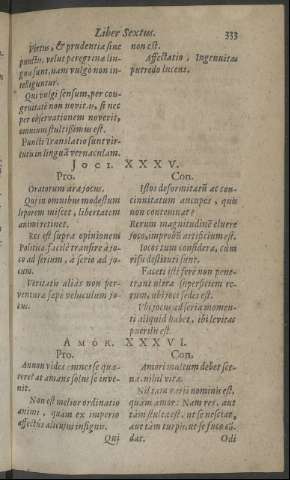 Liber Sextus. 333
Virtus, & prudentia sine
puncto, velut peregrinæ lin-
guæ sunt, nam vulgò non in-
telleguntur.
Qui vulgi sensum, per con-
gruitatē non novit, si nec
per observationem noverit,
omnium stultissimus est.
Puncti Translatio sunt vir-
tutu in linguā vernaculam.
non est.
Affectatio, Ingenuitas
putredo lucens.
JOCI. XXXV.
Pro.
Oratorum ara jocus.
Qui in omnibus modestum
leporem miscet, libertatem
animi retinet.
Res est supra opinionem
Politica facilè transire à jo-
co ad serium, à serio ad jo-
cum.
Veritatis aliàs non per-
venturæ sæpe vehiculum jo-
cus.
Con.
Istos deformitatū ac con-
cinnitatum aucupes, quis
non contemnat?
Rerum magnitudinē eluere
joco, improbū artificium est.
Jocos tum considera, cum
risu destituti sunt.
Faceti isti ferè non pene-
trant ultra superficiem re-
rum, ubi joci sedes est.
Ubi jocus ad seria momen-
ti aliquid habet, ibi levitas
puerilis est.
AMOR. XXXVI.
Pro.
Annon vides omnes se quæ-
rere? at amans solus se inve-
nit.
Non est melior ordinatio
animi, quam ex imperio
affectus alicujus insignis.
Qui
Con.
Amori multum debet sce-
na, nihil vita.
Nil tam varii nominis est,
quam amor: Nam res, aut
tàm stulta est, ut se nesciat,
aut tàm turpis, ut se fuco cō-
dat. Odi